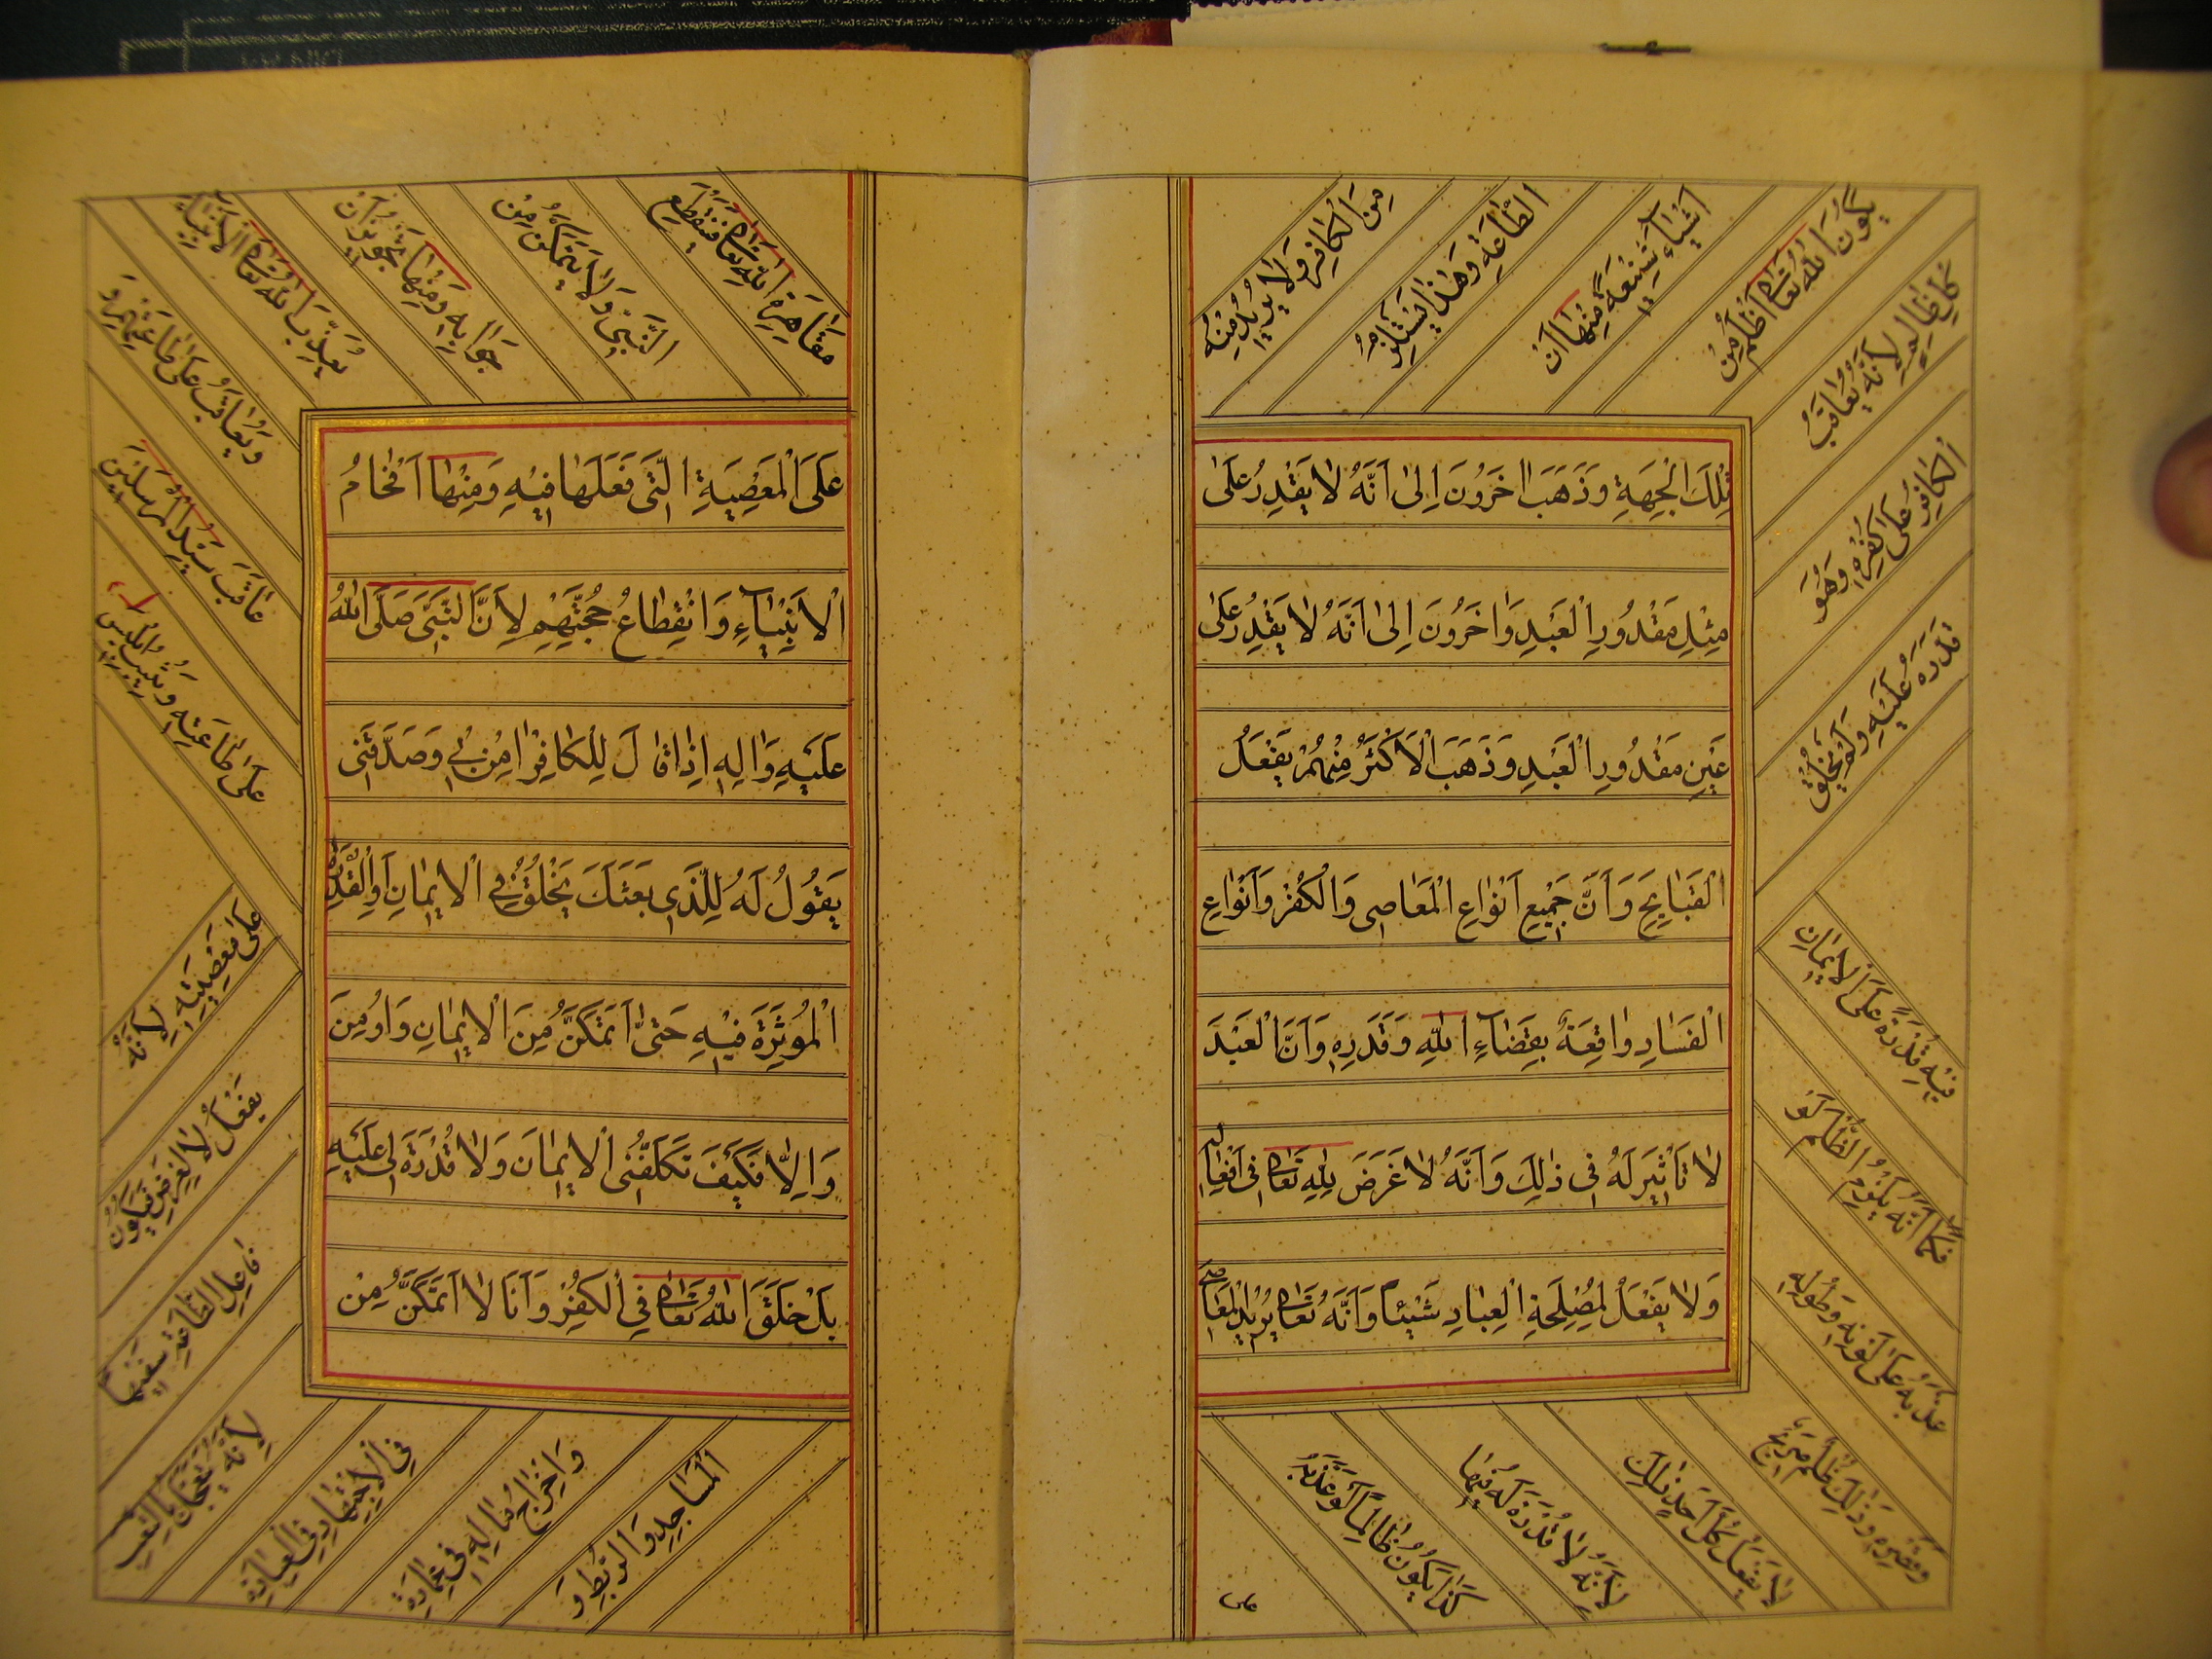 تِلْكَ الْجِهَةِ وَذَهَبَ اخَرُونَ اِلىٰ اَنَّهُ لا يَقْدِرُ عَلىٰ
مِثْلِ مَقْدُورِ الْعَبْدِ وَاخَرُونَ اِلىٰ اَنَّهُ لا يَقْدِرُ عَلىٰ
عَيْنِ مَقْدُورِ الْعَبْدِ وَذَهَبَ الْاَكْثَرُ مِنْهُمْ يَفْعَلُ
الْقَبٰايِحِ وَاَنَّ جَمْيعِ اَنْوٰاعِ الْمَعٰاصِى وَالْكُفْرِ وَاَنْوٰاعِ
الْفَسٰادِ وٰاقِعَةٌ بِقَضٰآءِ اللهِ وَقَدَرِهِ وَاَنَّ الْعَبْدَ
لا تَأثْيرَ لَهُ فِى ذٰلِكَ وَاَنَّهُ لا غَرَضَ لِلهِ تَعٰالىٰ فِى اَفْعٰالِهِ
وَلا يَفْعَلُ لِمَصْلِحَةِ الْعِبٰادِ شَيْئاً وَاَنَّهُ تَعٰالىٰ يُرْيدُ الْمَعٰاصِى
مِنَ الْكٰافِرِ وَلا يُرْيدُ مِنْهُ
الطّٰاعَةِ وَهٰذٰا يَسْتَلْزِمُ
اَشْيٰآءَ شَنْيعَةً مِنْهٰا اَنْ
يَكُونَ اللهُ تَعٰالىٰ اَظْلَمُ مِنْ
كُلِّ ظٰالِمٍ لِاَنَّهُ يُعٰاقِبُ
الْكٰافِرَ عَلىٰ كُفْرِهِ وَهُوَ
قَدَّرَهُ عَلَيْهِ وَلَمْ يَخْلُقْ
فْيهِ قُدْرَةً عَلَى الْايمٰانِ
فَكَمٰا اَنَّهُ يَلْزِمُ الظُّلْمَ لَوْ
عَذَّبَهُ عَلىٰ لَوْنِهِ وَطُولِهِ
وَقِصَرِهِ وَذٰلِكَ ظُلْمٌ صَرِيحٌ
لا يَفْعَلُ كُلُّ اَحَدٍ ذٰلِكَ
لِاَنَّهُ لا قُدْرَةَ لَهُ فْيهٰا
كَذٰا يَكُونُ ظٰالِماً لَوْ عَذَّبَهُ
على
عَلَى الْمَعْصِيَةِ الَّتى فَعَلَهٰا فيْهِ وَمِنْهٰا اَفْحٰامُ
الْاَنْبِيٰآءِ وَانْقِطٰاعُ حُجَّتِهِمْ لِاَنَّ النَّبِىَّ صَلَّى اللهُ
عَلَيْهِ وَالِهِ اِذٰا قٰالَ لِلْكٰافِرِ امِنْ بى وَصَدِّقْنى
يَقُولُ لَهُ لِلَّذى بَعَثَكَ يَخْلُقُ فِىَّ الْايمٰانِ اَوِ الْقُدْرَةَ
الْمُوَثِرَةَ فْيهِ حَتّىٰ اَتَمَكَّنَ مِنَ الْايمٰانِ وَاُومِنَ
وَاِلّٰا فَكَيْفَ تُكَلِّفُنِى الْايمٰانَ وَلا قُدْرَةَ لى عَلَيْهِ
بَلْ خَلَقَ اللهُ تَعٰالىٰ فِى الْكُفْرِ وَاَنَا لٰا اَتَمَكَّنُ مِنْ
مُقٰاهِرَةِ اللهِ تَعٰالىٰ فَيَنْقَطِعُ
النَّبِىُّ وَلا يَتَمَكَّنُ مِنْ
جَوٰابِهِ وَمِنْهٰا تَجْويزُ اَنْ
يُعَذِّبَ اللهُ تَعٰالىٰ الْاَنْبِيٰآءَ
وَيُعٰاقِبُ عَلىٰ طٰاعَتِهِمْ وَ
عٰاقَبَ سَيِّدُ الْمُرْسَلينَ
عَلىٰ طٰاعَتِهِ وَيُثيبُ ابْليسَ
عَلىٰ مَعْصِيَتِهِ لِاَنَّهُ
يَفْعَلُ لا لِغَرَضٍ فَيَكُونُ
فٰاعِلِ الطّٰاعَةِ سَفيهاً
لِاَنَّهُ يَتَعَجَّلُ بِالتَّعَبِ
فِى الْاِجْتِهٰادِ فِى الْعِبٰادَةِ
وَاِخْرٰاجُ مٰالِهِ فى عِمٰارَةِ
الْمَسٰاجِدِ وَالرُّبُطِ وَ